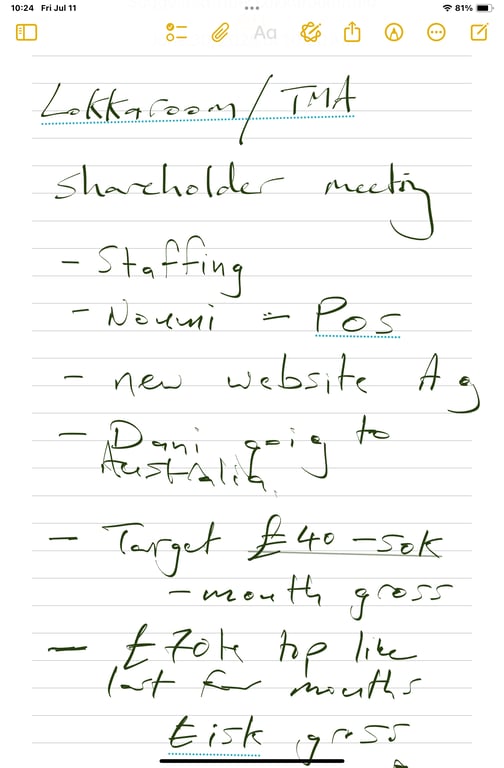 10:24 Fri Jul 11
81%
Aa
Lokkaroom / TMA
shareholder meeting
- Staffing
- Noemi = Pos
- new website Ag
- Dani goig to
Australia.
- Target £40-50k
- month gross
- £70k top like
last for mouths
gross